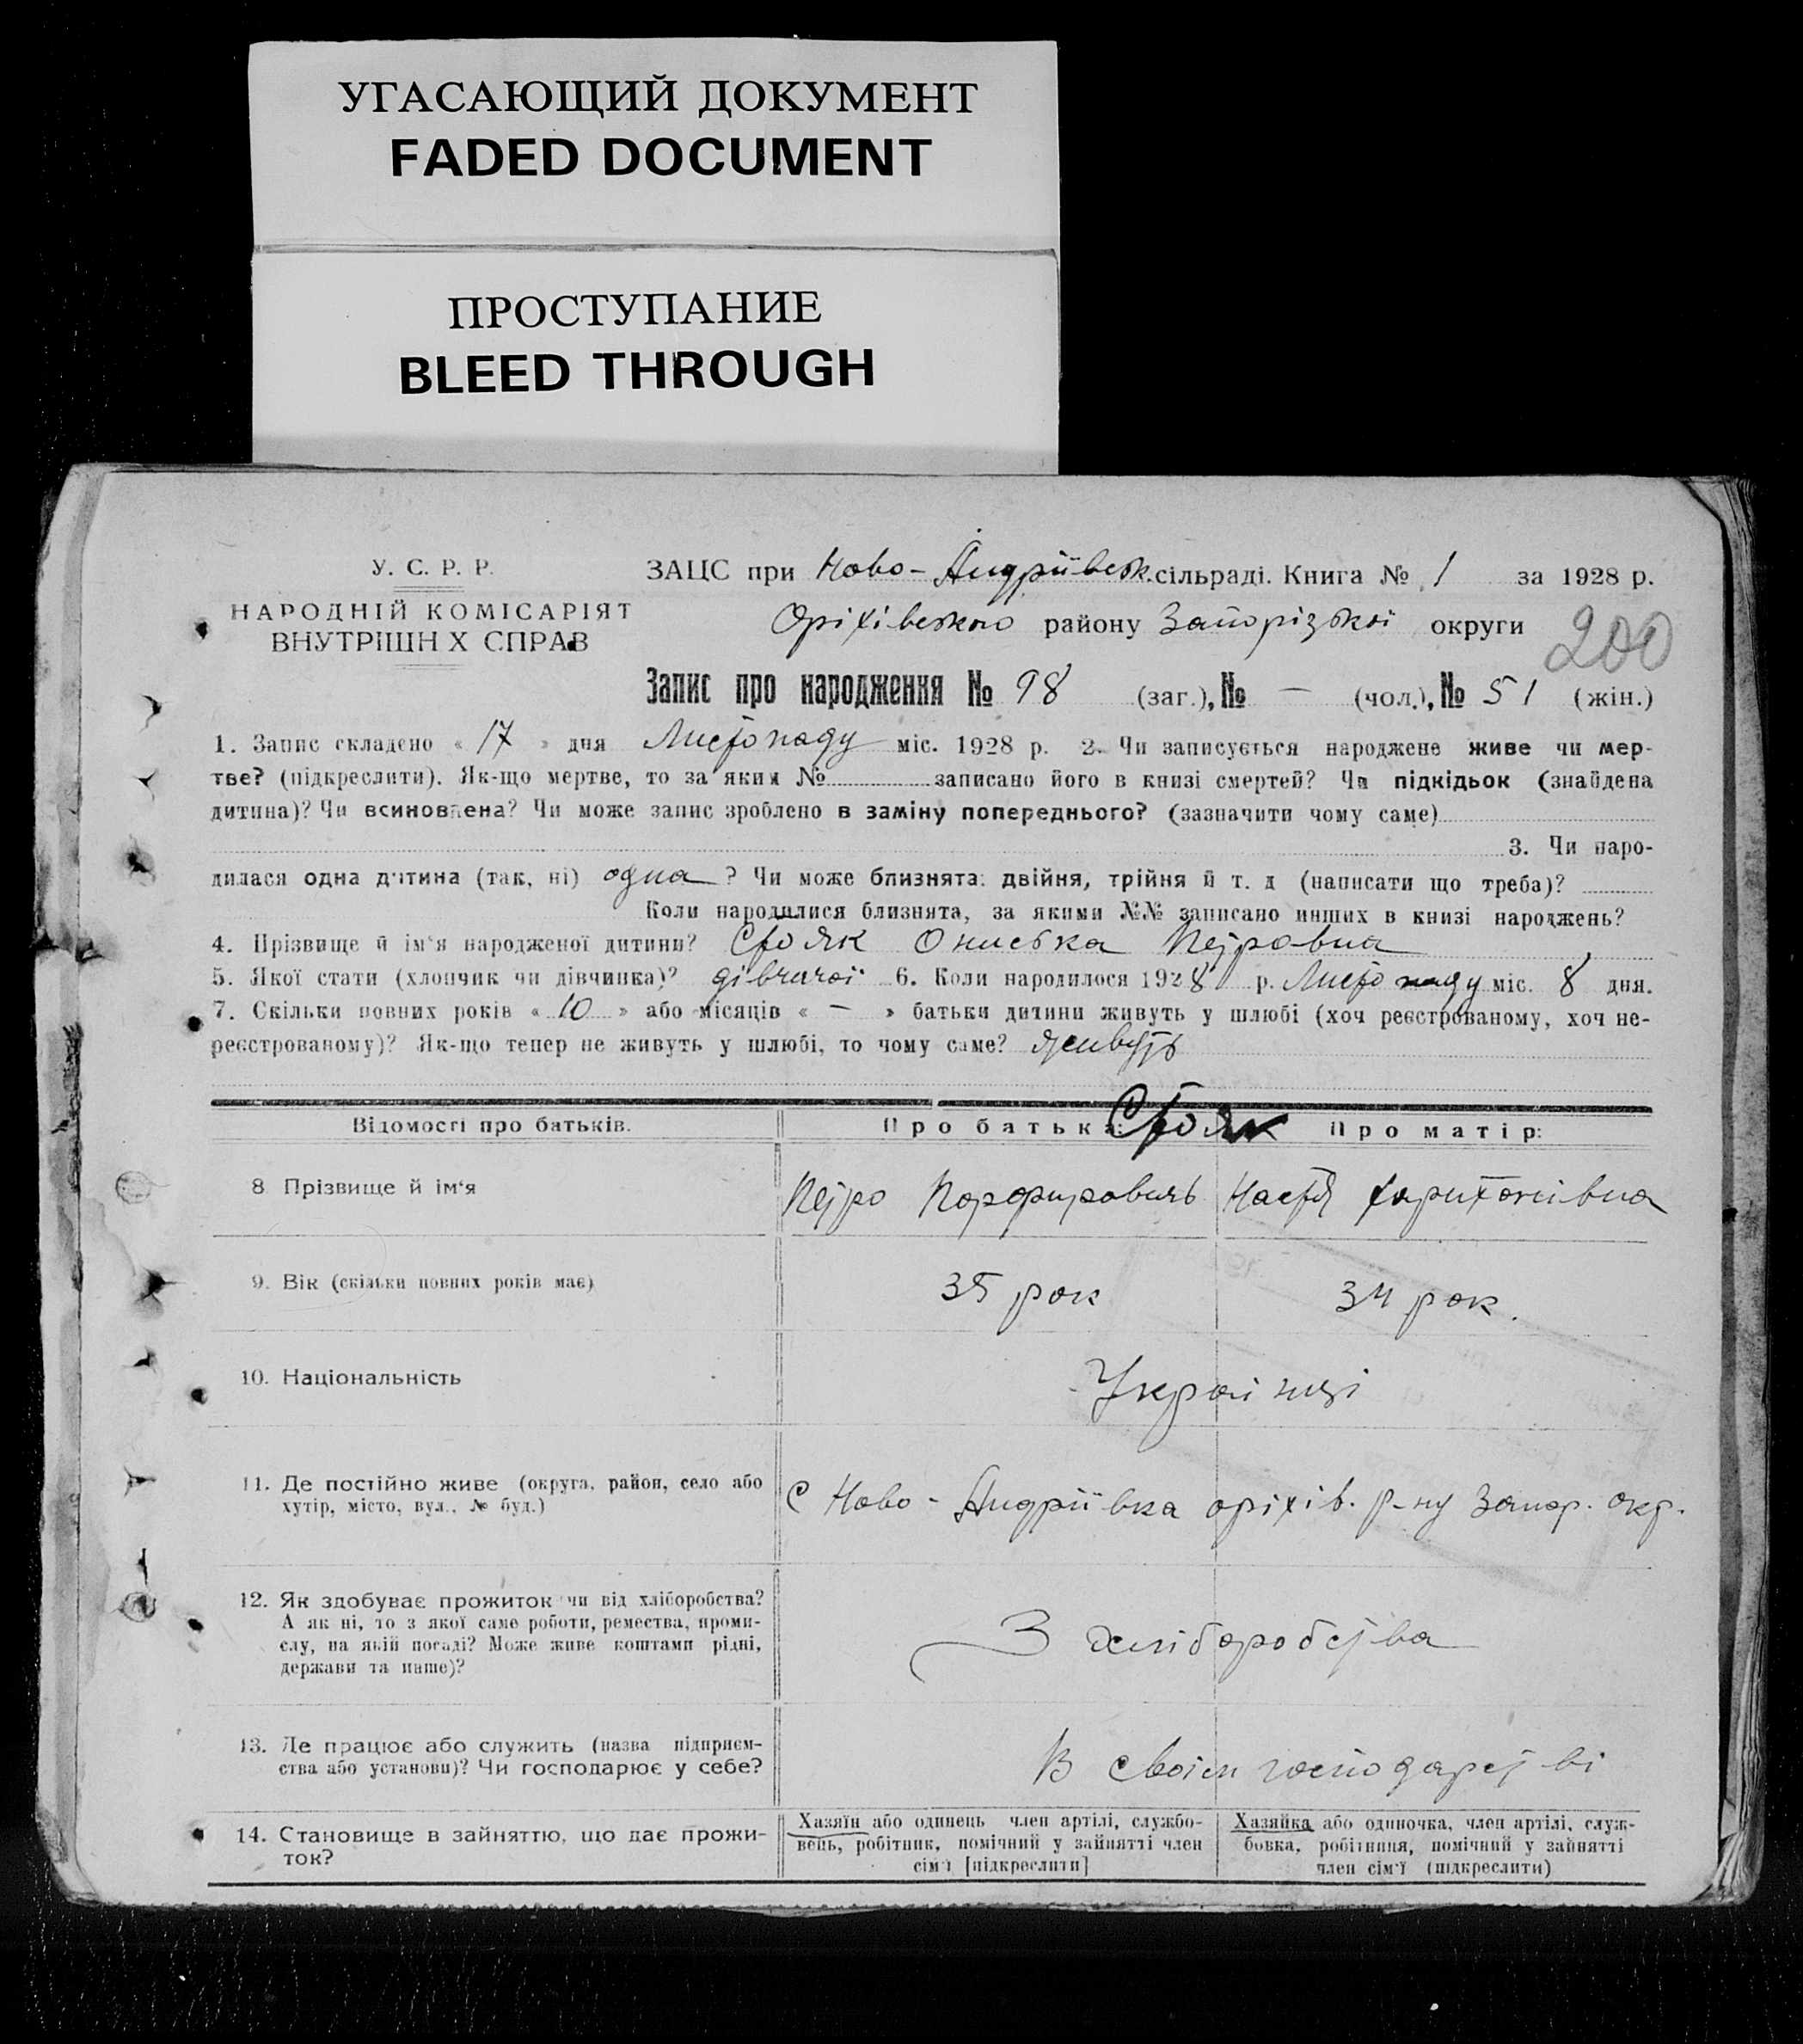 УГАСАЮЩИЙ ДОКУМЕНТ
FADED DOCUMENT
ПРОСТУПАНИЕ
BLEED THROUGH
У. С. Р. Р.
НАРОДНІЙ КОМІСАРІЯТ
ВНУТРІШН Х СПРАВ
ЗАЦС при Ново-Андріївськ. сільраді. Книга № 1 за 1928 р.
Оріхівського району Запорізької округи
200
Запис про народження № 98 (заг.), № — (чол.), № 51 (жін.)
1. Запис складено « 17 » дня Листопаду міс. 1928 р. 2. Чи записується народжене живе чи мер-
тве? (підкреслити). Як-що мертве, то за яким № записано його в книзі смертей? Чи підкідьок (знайдена
дитина)? Чи всиновлена? Чи може запис зроблено в заміну попереднього? (зазначити чому саме)
3. Чи наро-
дилася одна дитина (так, ні) одна ? Чи може близнята: двійня, трійня й т. д (написати що треба)?
Коли народилися близнята, за якими №№ записано инших в книзі народжень?
4. Прізвище й ім‘я народженої дитини? Стояк Ониська Петровна
5. Якої стати (хлопчик чи дівчинка)? дівчачої 6. Коли народилося 1928 р. Листопаду міс. 8 дня.
7. Скільки повних років « 10 » або місяців « — » батьки дитини живуть у шлюбі (хоч реєстрованому, хоч не-
реєстрованому)? Як-що тепер не живуть у шлюбі, то чому саме? Живуть
Відомості про батьків. Про батька: Стояк Про матір:
8 Прізвище й ім‘я Петро Порфирович Настя Харитонівна
9. Вік (скільки повних років має) 35 рок 34 рок.
10. Національність Українці
11. Де постійно живе (округа, район, село або
хутір, місто, вул., № буд.) С Ново-Андріївка оріхів. р-ну Запор. окр.
12. Як здобуває прожиток чи від хліборобства?
А як ні, то з якої саме роботи, ремества, проми-
слу, на якій посаді? Може живе коштами рідні,
держави та инше)? З хліборобства
13. Де працює або служить (назва підприєм-
ства або установи)? Чи господарює у себе? В своїм господарстві
14. Становище в зайняттю, що дає прожи-
ток?
Хазяїн або одинець член артілі, службо-
вець, робітник, помічний у зайнятті член
сім‘ї [підкреслити]
Хазяйка або одиночка, член артілі, служ-
бовка, робітниця, помічний у зайнятті
член сім‘ї (підкреслити)